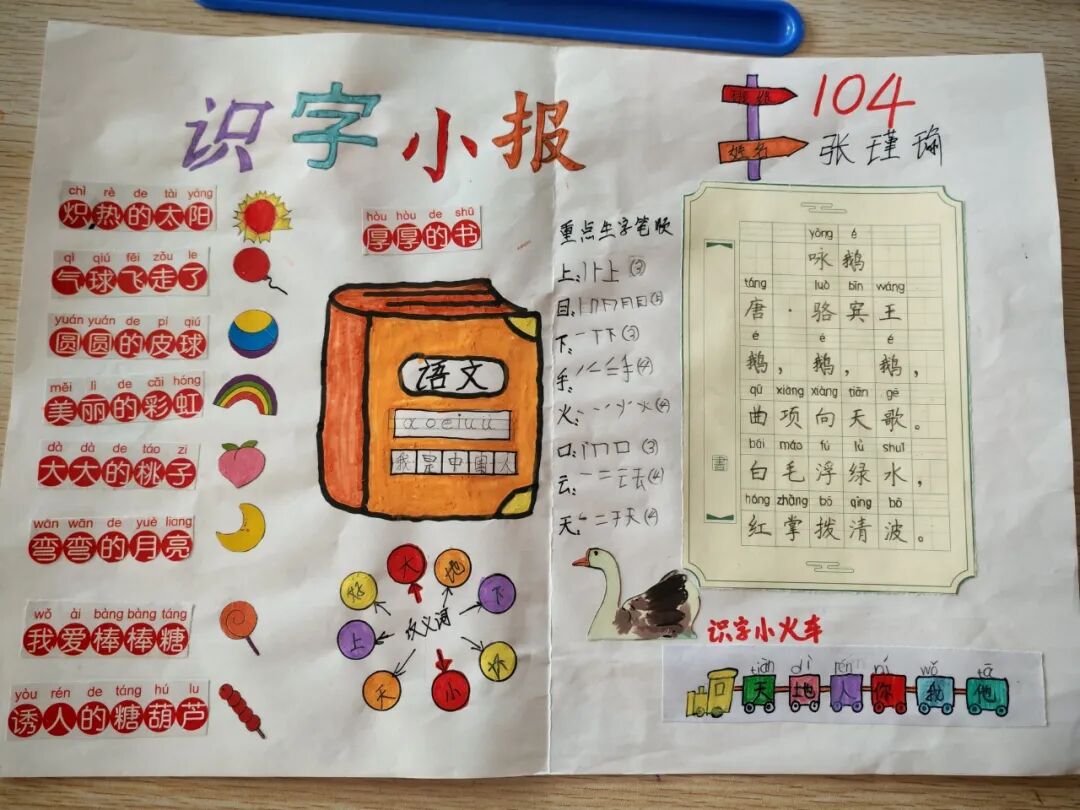 识字小报
班级
104
姓名
张瑾瑜
chì rè de tài yáng
炽热的太阳
qì qiú fēi zǒu le
气球飞走了
yuán yuán de pí qiú
圆圆的皮球
měi lì de cǎi hóng
美丽的彩虹
dà dà de táo zi
大大的桃子
wān wān de yuè liang
弯弯的月亮
wǒ ài bàng bàng táng
我爱棒棒糖
yòu rén de táng hú lu
诱人的糖葫芦
hòu hòu de shū
厚厚的书
语文
a o e i u ü
我是中国人
反义词
大
地
下
坏
小
天
上
好
重点生字笔顺
上:丨⺊上(3)
目:丨冂冃月目(5)
下:一丅下(3)
手:㇒二三手(4)
火:丶丷少火(4)
口:丨冂口(3)
云:一二云云(4)
天:一二于天(4)
yǒng é
咏鹅
táng luò bīn wáng
唐·骆宾王
é é é
鹅,鹅,鹅,
qū xiàng xiàng tiān gē
曲项向天歌。
bái máo fú lǜ shuǐ
白毛浮绿水,
hóng zhǎng bō qīng bō
红掌拨清波。
書
识字小火车
tiān dì rén nǐ wǒ tā
天地人你我他